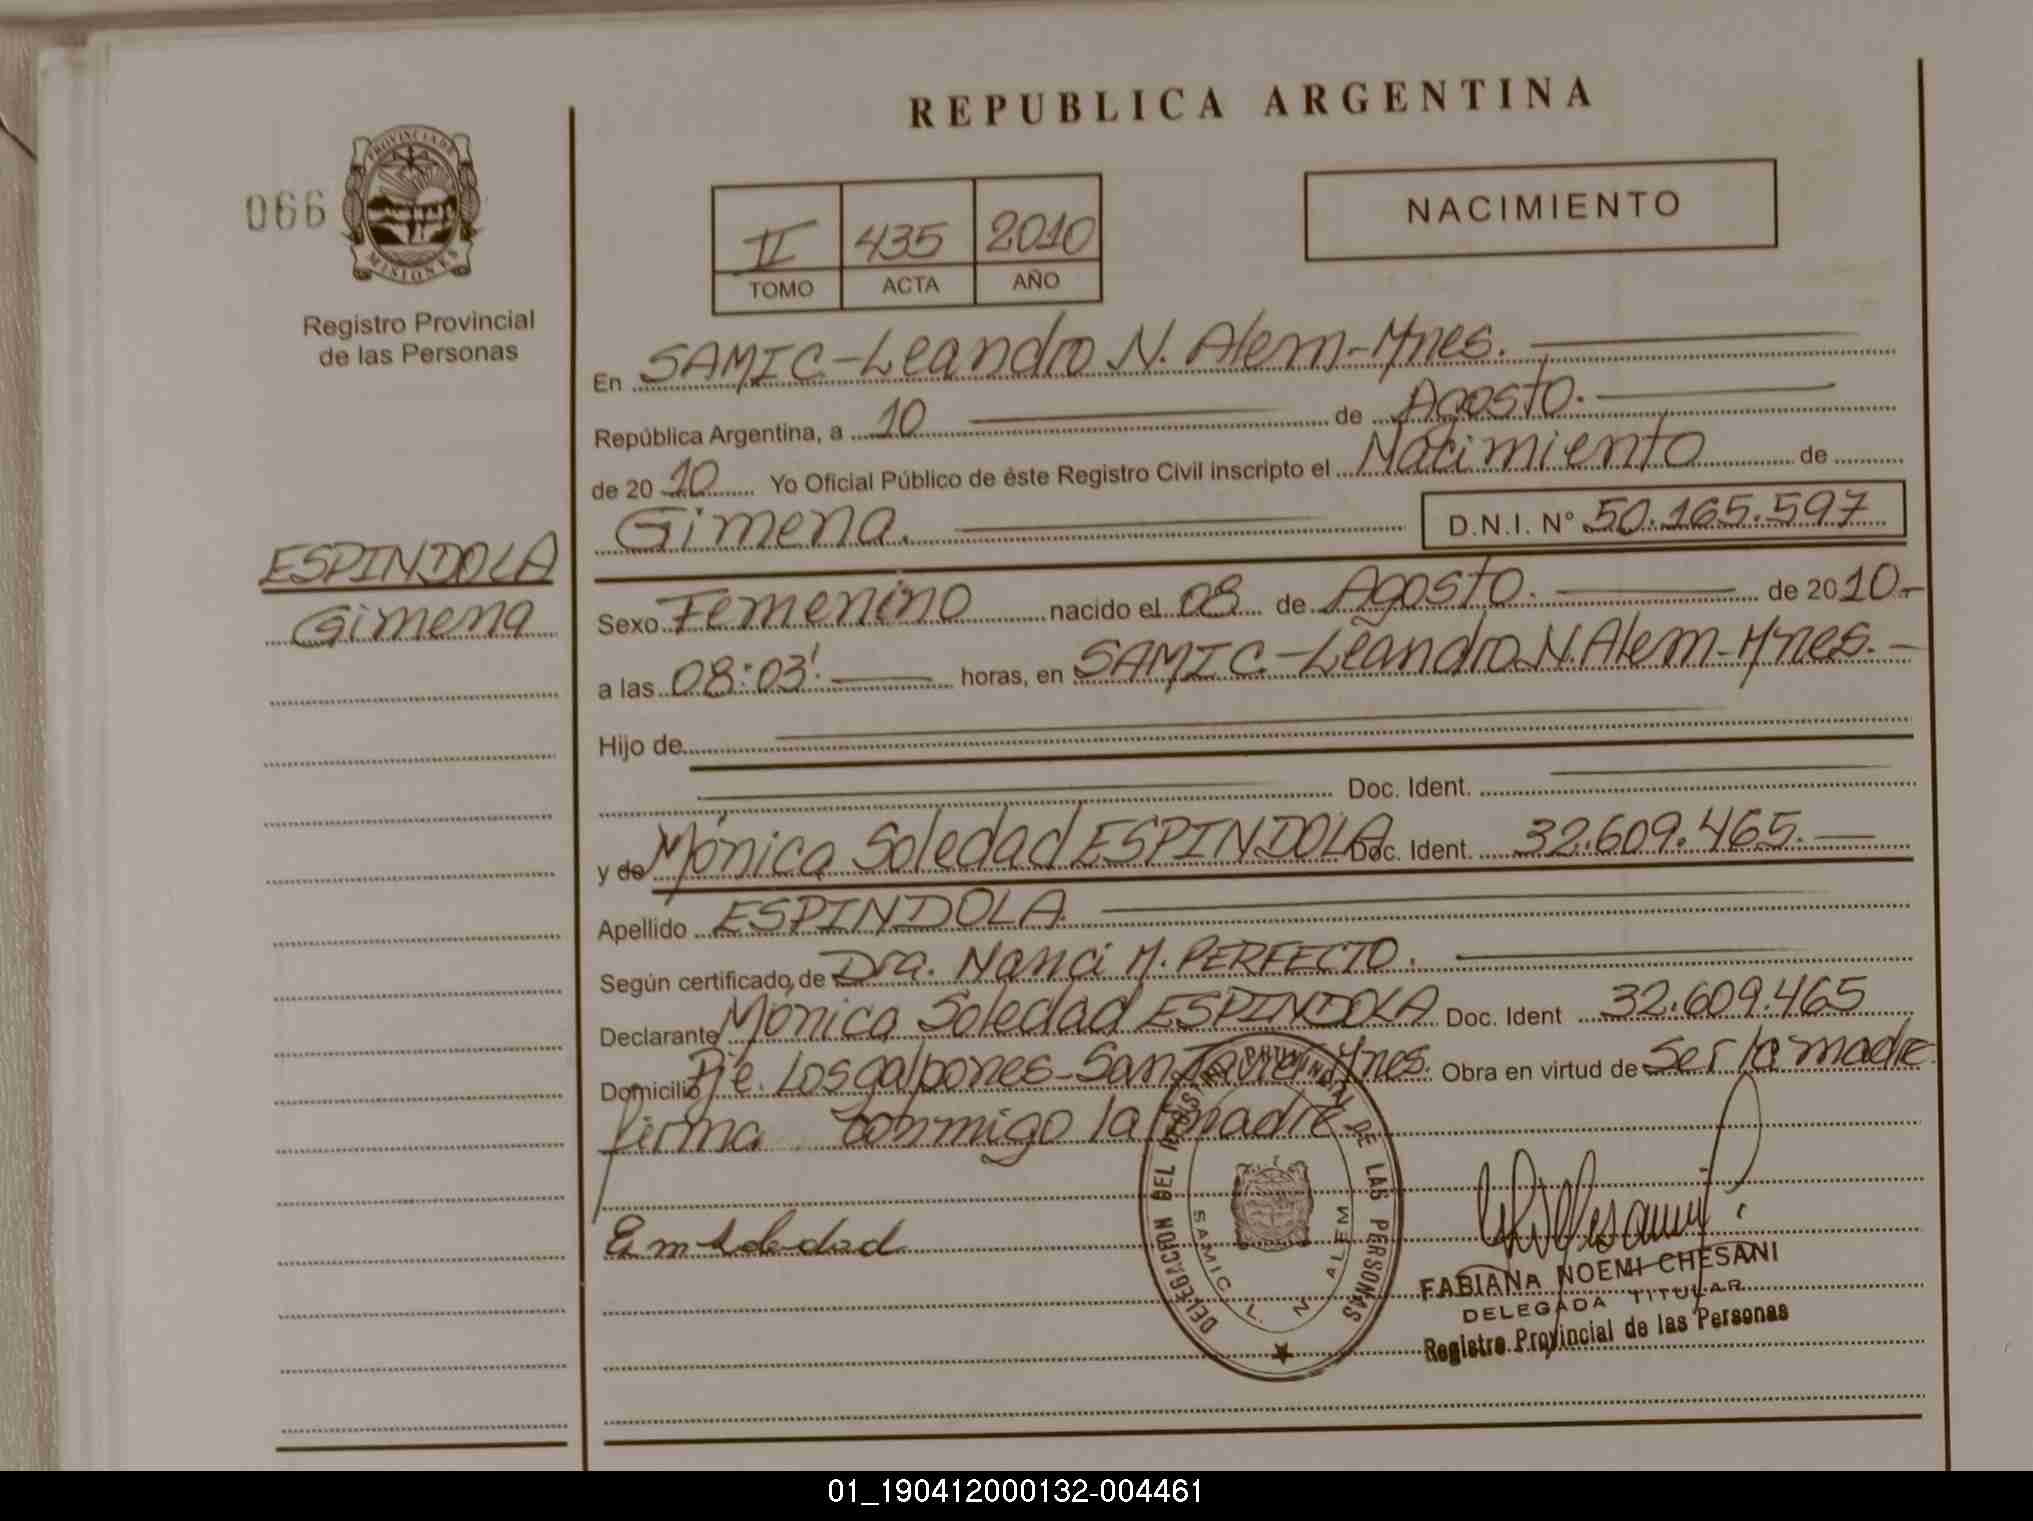 REPUBLICA ARGENTINA
066
PROVINCIA DE
MISIONES
Registro Provincial
de las Personas
II 435 2010
TOMO ACTA AÑO
NACIMIENTO
En SAMIC-Leandro N. Alem-Mnes.
República Argentina, a 10 de Agosto.
de 20 10 Yo Oficial Público de éste Registro Civil inscripto el Nacimiento de
Gimena. D.N.I. N° 50.165.597
ESPINDOLA
Gimena
Sexo Femenino nacido el 08 de Agosto. de 2010.-
a las 08:03' horas, en SAMIC.-Leandro N. Alem-Mnes.-
Hijo de
Doc. Ident.
y de Mónica Soledad ESPINDOLA Doc. Ident. 32.609.465.-
Apellido ESPINDOLA.
Según certificado, de Dra. Nanci M. PERFECTO.
Declarante Mónica Soledad ESPINDOLA Doc. Ident 32.609.465
Domicilio Pje. Los galpones-San Javier Mnes. Obra en virtud de Ser la madre
firma conmigo la madre
DELEGACION DEL REGISTRO PROVINCIAL DE LAS PERSONAS
SAMIC L. N. ALEM
FABIANA NOEMI CHESANI
DELEGADA TITULAR
Registro Provincial de las Personas
01_190412000132-004461